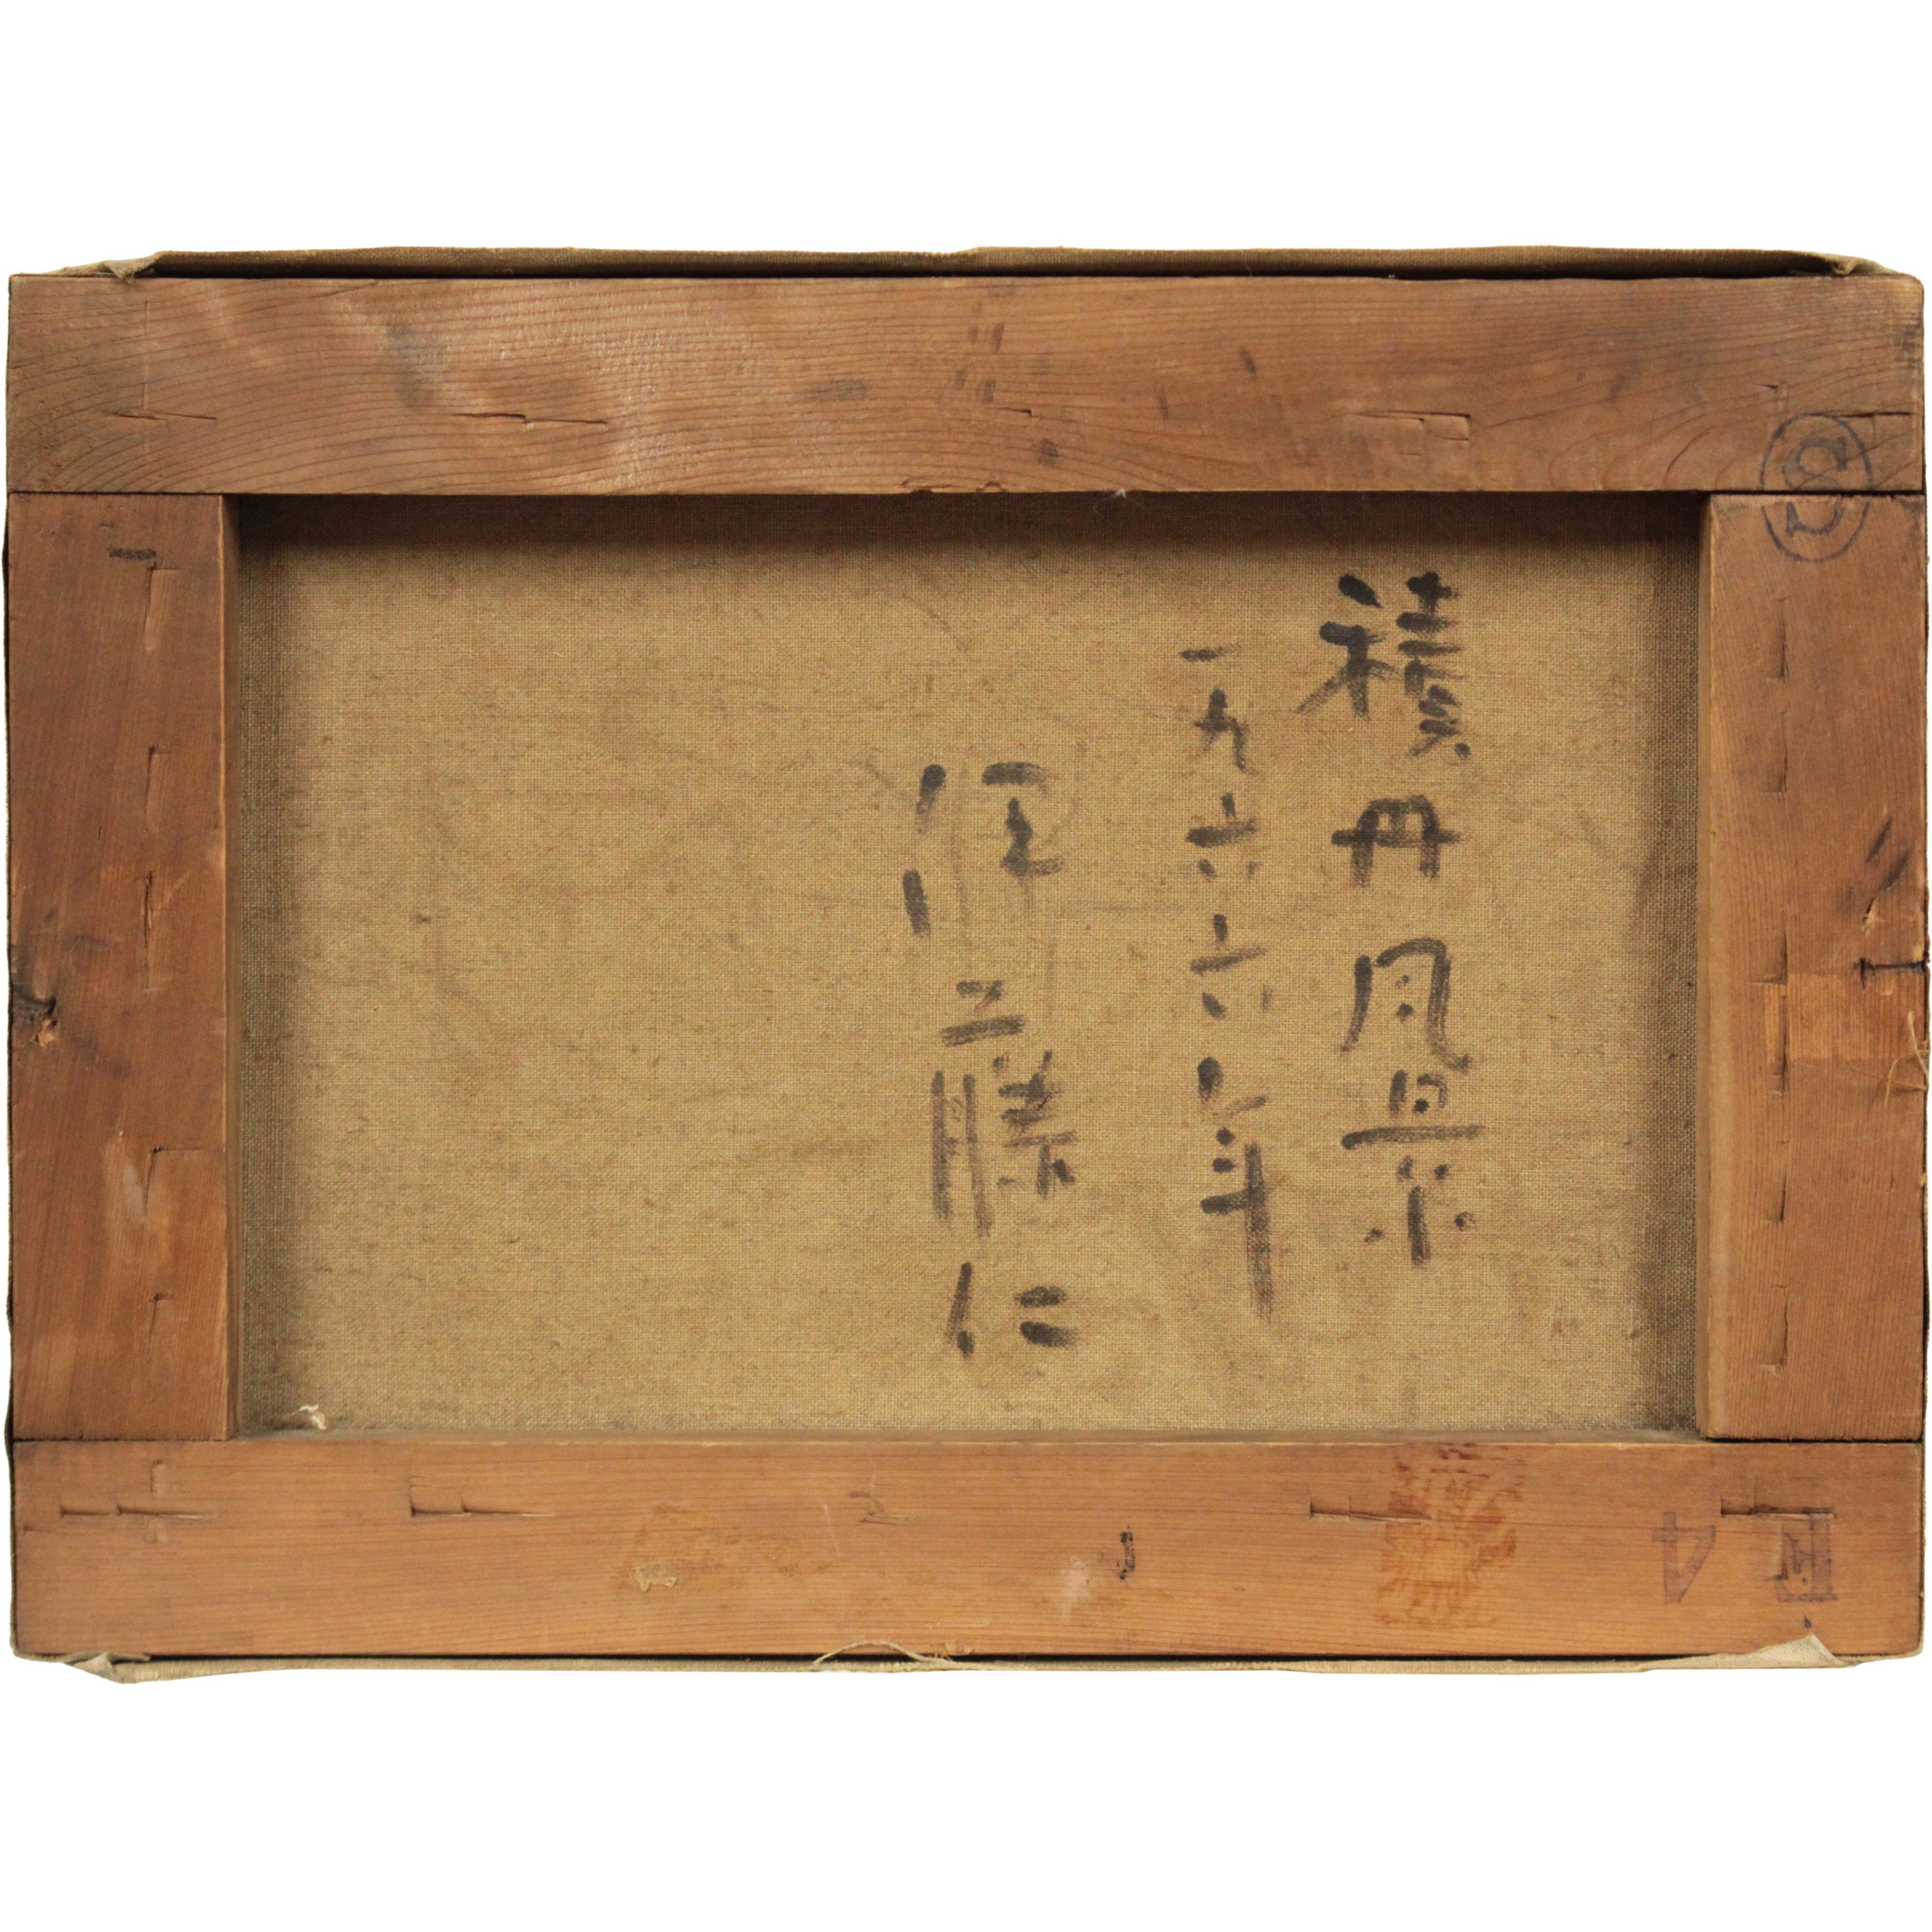 積丹風景
一九六六年
佐藤仁
F 4